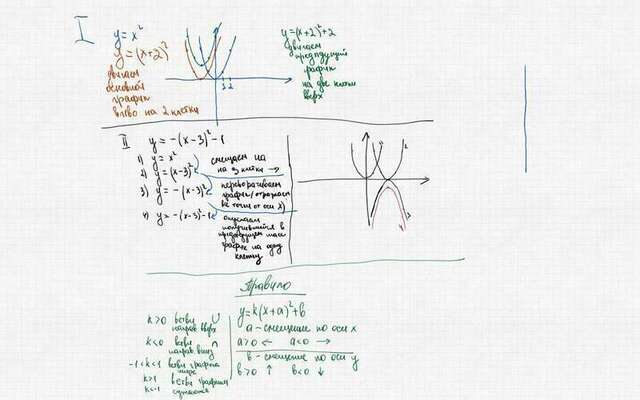 I
y = x²
y = (x+2)²
двигаем
основной
график
влево на 2 клетки
1 2
y = (x+2)²+2
двигаем
предыдущий
график
на две клетки
вверх
II
y = -(x-3)²-1
1) y = x²
2) y = (x-3)²
3) y = -(x-3)²
4) y = -(x-3)²-1
смещаем на
на 3 клетки →
переворачиваем
график/отражаем
все точки от оси x)
опускаем
получившийся в
предыдущем шаге
график на одну
клетку
1
2
3
4
Правило
k>0 ветви
направ. вверх
k<0 ветви
направ. вниз
-1<k<1 ветви графика
шире
k>1 ветви графика
k<-1 сужаются
y = k(x+a)²+b
a - смещение по оси x
a>0 ← a<0 →
b - смещение по оси y
b>0 ↑ b<0 ↓